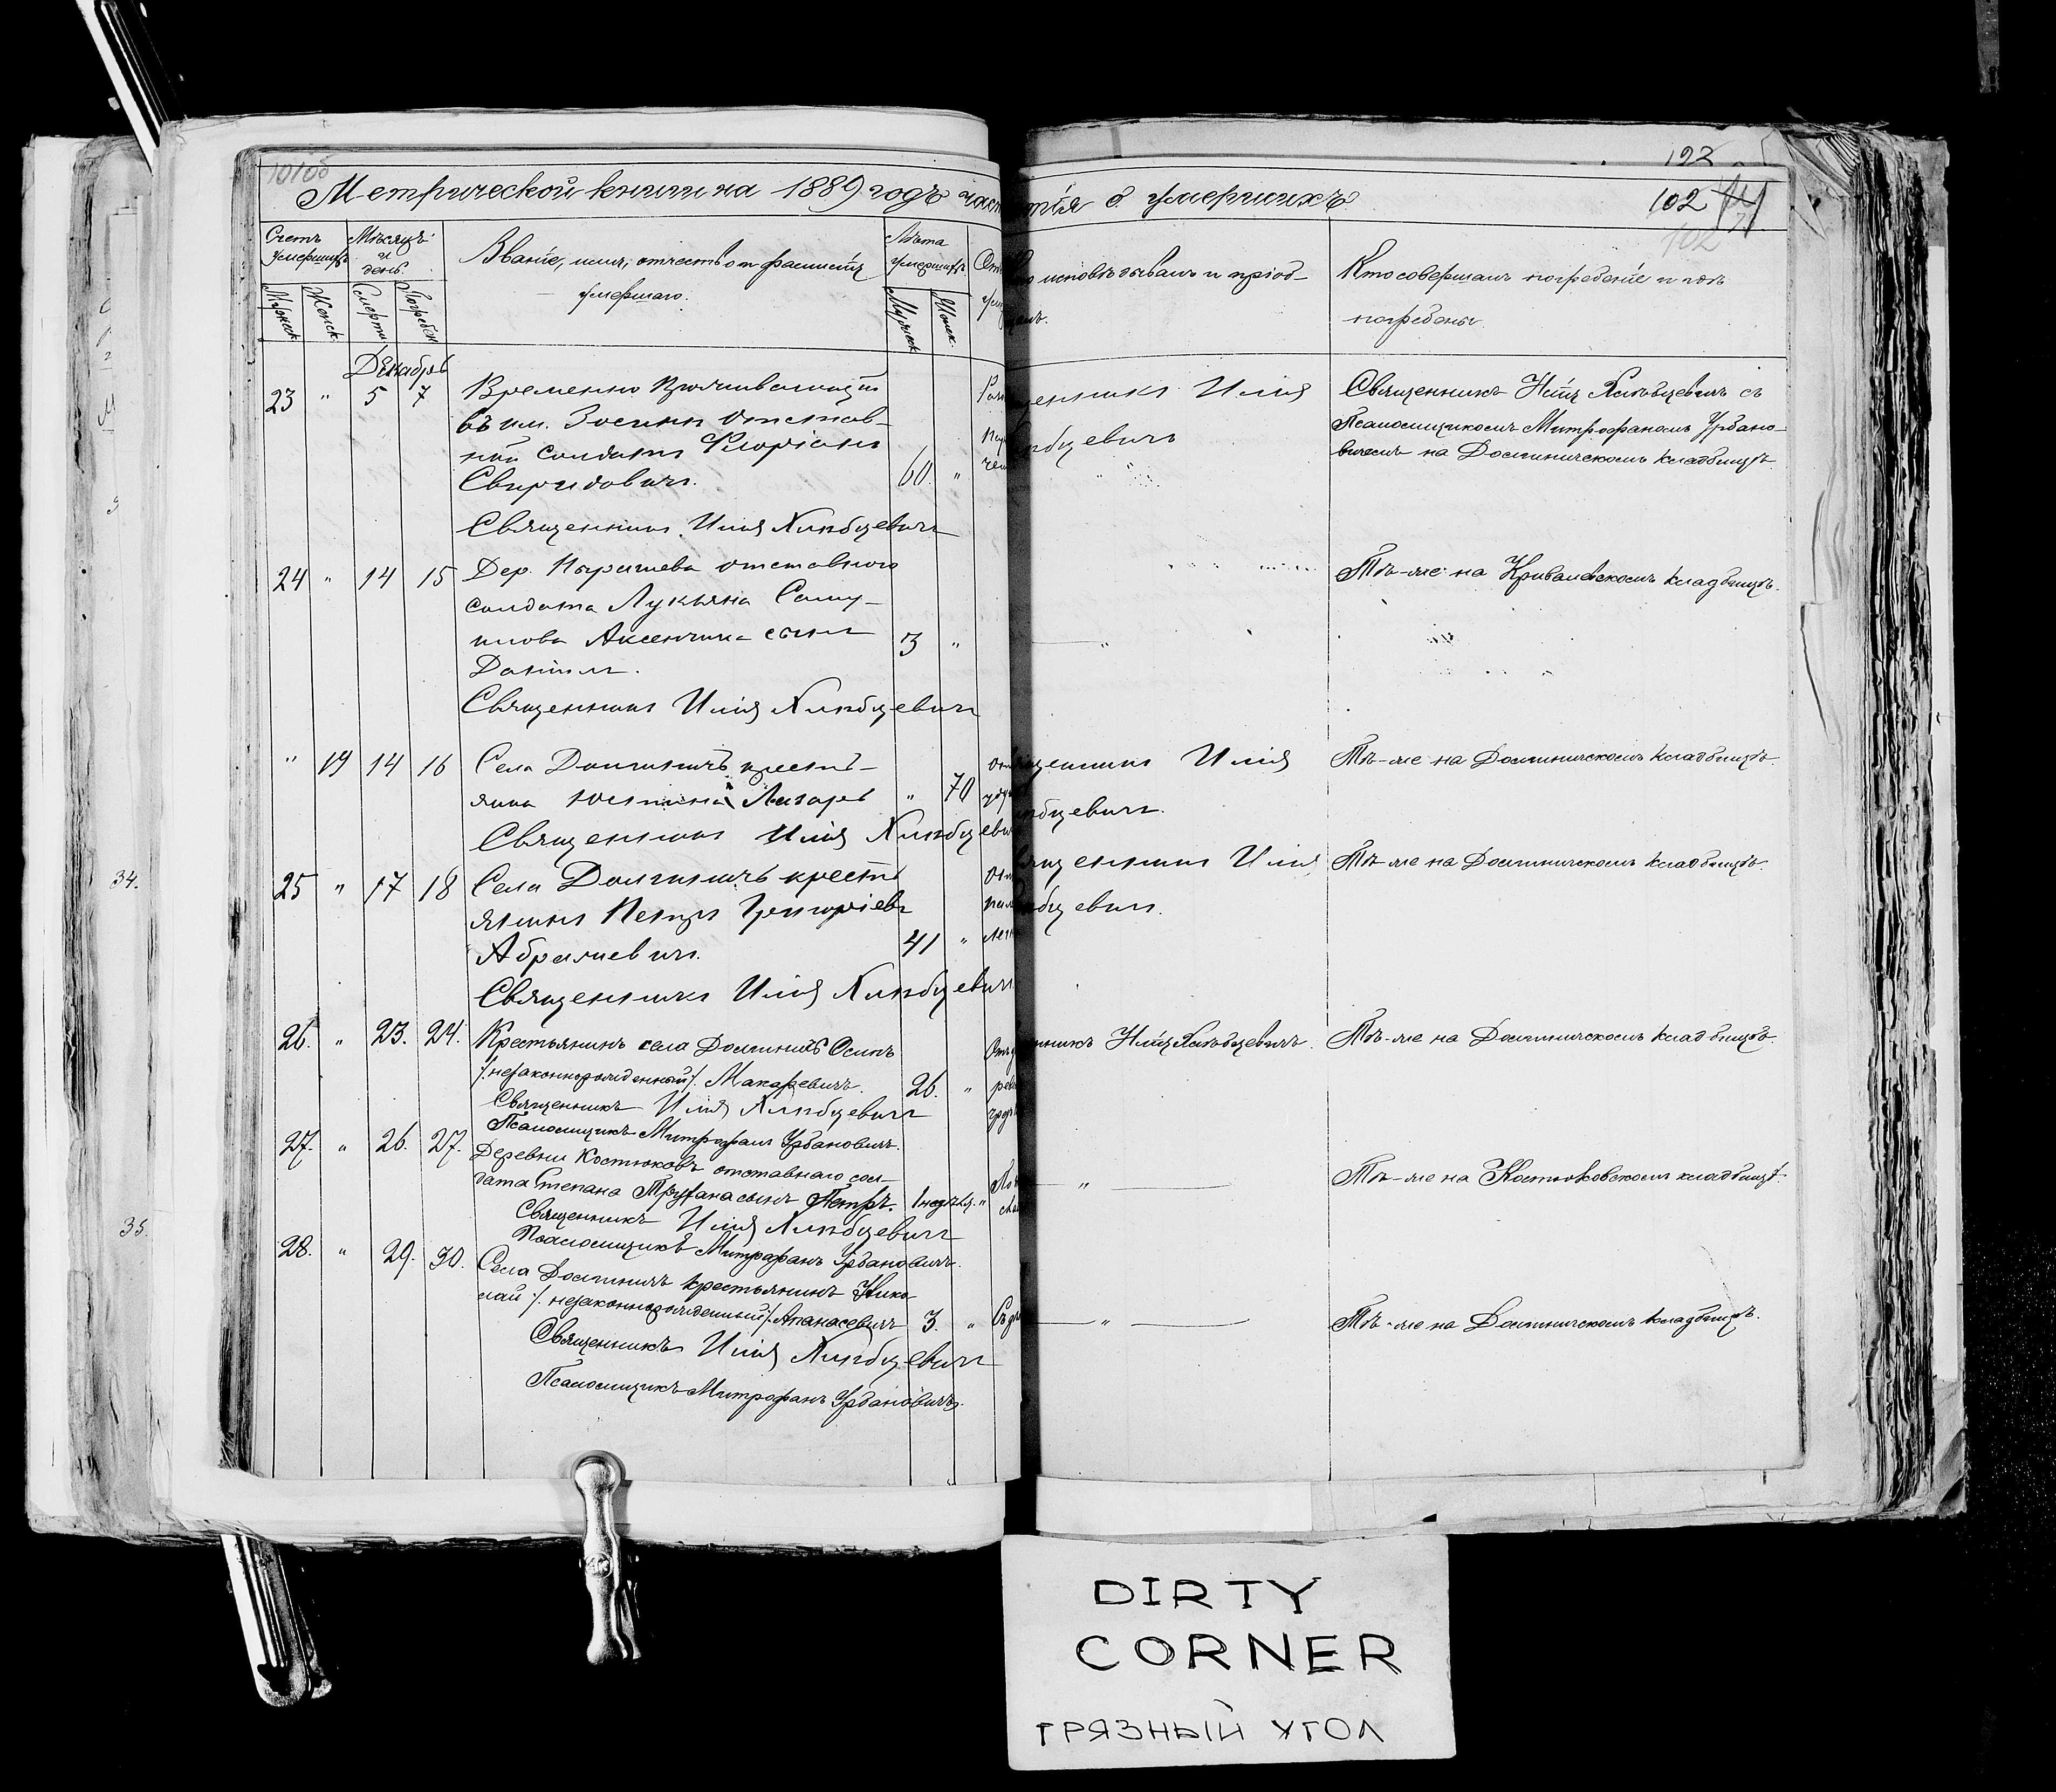 101об
Метрической книги на 1889 годъ час
тія о умершихъ.
192
102
102
Счетъ умершихъ
Мужск.
Женск.
Мѣсяцъ и день.
Смерти
Погребен
Званіе, имя, отчество и фамилія
умершаго.
Лѣта умершихъ
Мужск.
Женск.
исповѣдывалъ и пріоб-
щалъ.
Кто совершалъ погребеніе и гдѣ
погребены
Декабрь
23 " 5 7 Временно Проживающій
въ им. отстав-
ной солдатъ Флоріанъ
Свиридовичъ. 60. "
Священникъ Илія Хлѣбцевичъ
Илія
бцевичъ
Священникъ Илія Хлѣбцевичъ съ
Псаломщикомъ Митрофаномъ Урбано-
вичемъ на Долгиничскомъ кладбищѣ
24 " 14 15 Дер. отставного
солдата Лукьяна Саму-
илова сынъ 3 "
Даніилъ.
Священникъ Илія Хлѣбцевичъ
Тѣ-же на Кривалевскомъ кладбищѣ.
" 19 14 16 Села Долгиничъ кресть-
янка Юстина Лазарь " 70
Священникъ Илія Хлѣбцевичъ
щенникъ Илія
бцевичъ.
Тѣ-же на Долгиничскомъ кладбищѣ.
25 " 17 18 Села Долгиничъ кресть
янинъ Петръ Григоріевъ
Абрамевичъ. 41 "
Священникъ Илія Хлѣбцевичъ
щенникъ Илія
бцевичъ.
Тѣ-же на Долгиничскомъ кладбищѣ.
26. " 23. 24. Крестьянинъ села Долгиничъ Осипъ
/:незаконнорожденный:/ Макаревичъ. 26. "
Священникъ Илія Хлѣбцевичъ
Псаломщикъ Митрофанъ Урбановичъ.
никъ Илія Хлѣбцевичъ.
Тѣ-же на Долгиничскомъ кладбищѣ.
27. " 26. 27. Деревни Костюковъ отставнаго сол-
дата Степана Труфана сынъ Петръ. 1 недѣл. "
Священникъ Илія Хлѣбцевичъ
Псаломщикъ Митрофанъ Урбановичъ.
"
Тѣ-же на Костюковскомъ кладбищѣ.
28. " 29. 30. Села Долгиничъ крестьянинъ Нико-
лай /:незаконнорожденный:/ Апанасевичъ 3. "
Священникъ Илія Хлѣбцевичъ
Псаломщикъ Митрофанъ Урбановичъ.
"
Тѣ-же на Долгиничскомъ кладбищѣ.
34.
35.
DIRTY
CORNER
ГРЯЗНЫЙ УГОЛ